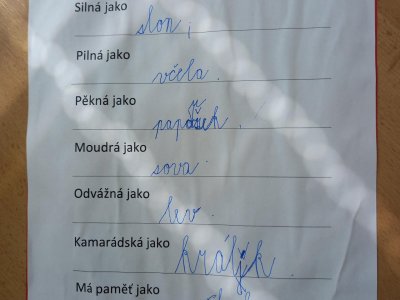 Silná jako
slon,
Pilná jako
včela.
Pěkná jako
Moudrá jako
sova.
Odvážná jako
lev.
Kamarádská jako
králík.
Má paměť jako